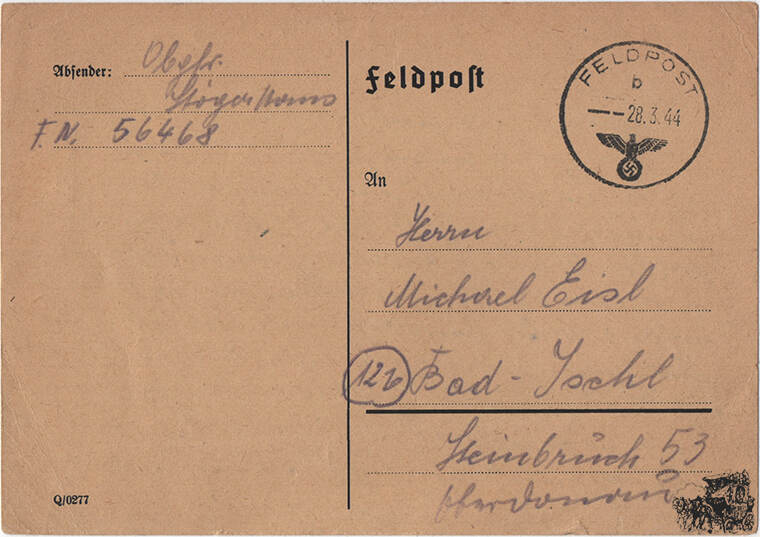 Absender: Obgfr.
F.N. 56468
Q/0277
Feldpost
FELDPOST
b
28.3.44
An
Herrn
Michael Eisl
12b Bad-Ischl
Steinbruch 53
Oberdonau